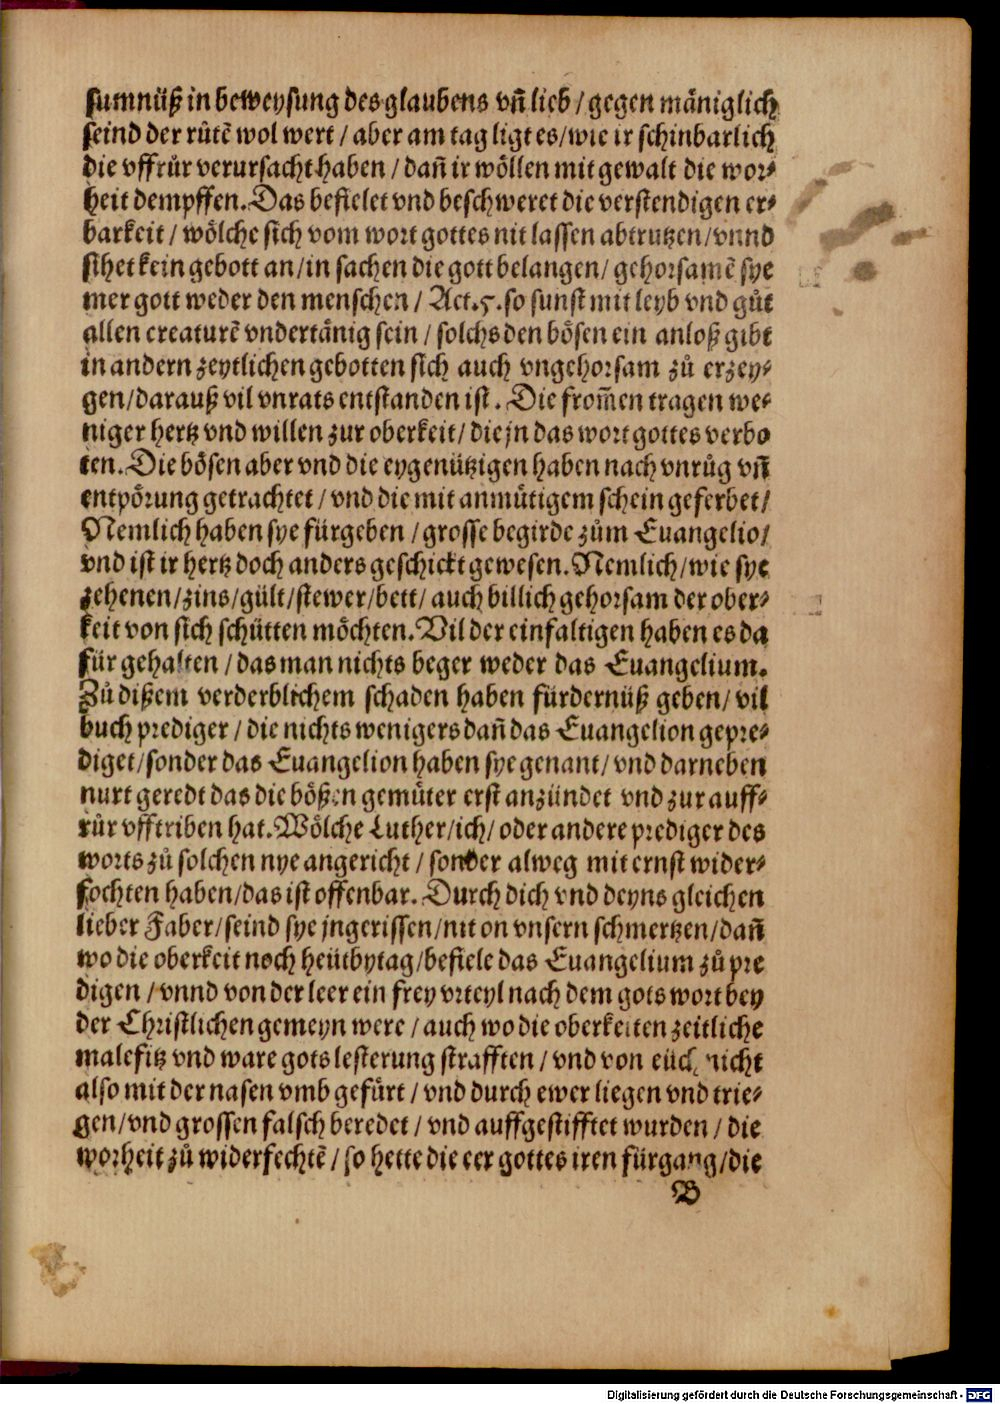 sumnüß in beweysung des glaubens vñ lieb / gegen mäniglich
seind der růtē wol wert / aber am tag ligt es / wie ir schinbarlich
die vffrůr verursacht haben / dañ ir wöllen mit gewalt die wor⸗
heit dempffen. Das befielet vnd beschweret die verstendigen er⸗
barkeit / wölche sich vom wort gottes nit lassen abtrutzen / vnnd
sihet kein gebott an / in sachen die gott belangen / gehorsamē sye
mer gott weder den menschen / Act. 5. so sunst mit leyb vnd gůt
allen creaturē vndertänig sein / solchs den bösen ein anloß gibt
in andern zeytlichen gebotten sich auch vngehorsam zů erzey⸗
gen / darauß vil vnrats entstanden ist. Die from̃en tragen we⸗
niger hertz vnd willen zur oberkeit / die jn das wort gottes verbo
ten. Die bösen aber vnd die eygenützigen haben nach vnrůg vñ
entpörung getrachtet / vnd die mit anmůtigem schein geferbet /
Nemlich haben sye fürgeben / grosse begirde zům Euangelio /
vnd ist ir hertz doch anders geschickt gewesen. Nemlich / wie sye
zehenen / zins / gült / stewer / bett / auch billich gehorsam der ober⸗
keit von sich schütten möchten. Vil der einfaltigen haben es da
für gehalten / das man nichts beger weder das Euangelium.
Zů dißem verderblichem schaden haben fürdernüß geben / vil
buch prediger / die nichts wenigers dañ das Euangelion gepre⸗
diget / sonder das Euangelion haben sye genant / vnd darneben
nurt geredt das die bößen gemůter erst anzündet vnd zur auff⸗
růr vfftriben hat. Wölche Luther / ich / oder andere prediger des
worts zů solchen nye angericht / sonder alweg mit ernst wider⸗
fochten haben / das ist offenbar. Durch dich vnd deyns gleichen
lieber Faber / seind sye jngerissen / nit on vnsern schmertzen / dañ
wo die oberkeit noch heütbytag / befiele das Euangelium zů pre
digen / vnnd von der leer ein frey vrteyl nach dem gots wort bey
der Christlichen gemeyn were / auch wo die oberkeiten zeitliche
malefitz vnd ware gots lesterung strafften / vnd von eüch nicht
also mit der nasen vmb gefürt / vnd durch ewer liegen vnd trie⸗
gen / vnd grossen falsch beredet / vnd auffgestifftet wurden / die
worheit zů widerfechtē / so hette die eer gottes iren fürgang / die
B
Digitalisierung gefördert durch die Deutsche Forschungsgemeinschaft - DFG